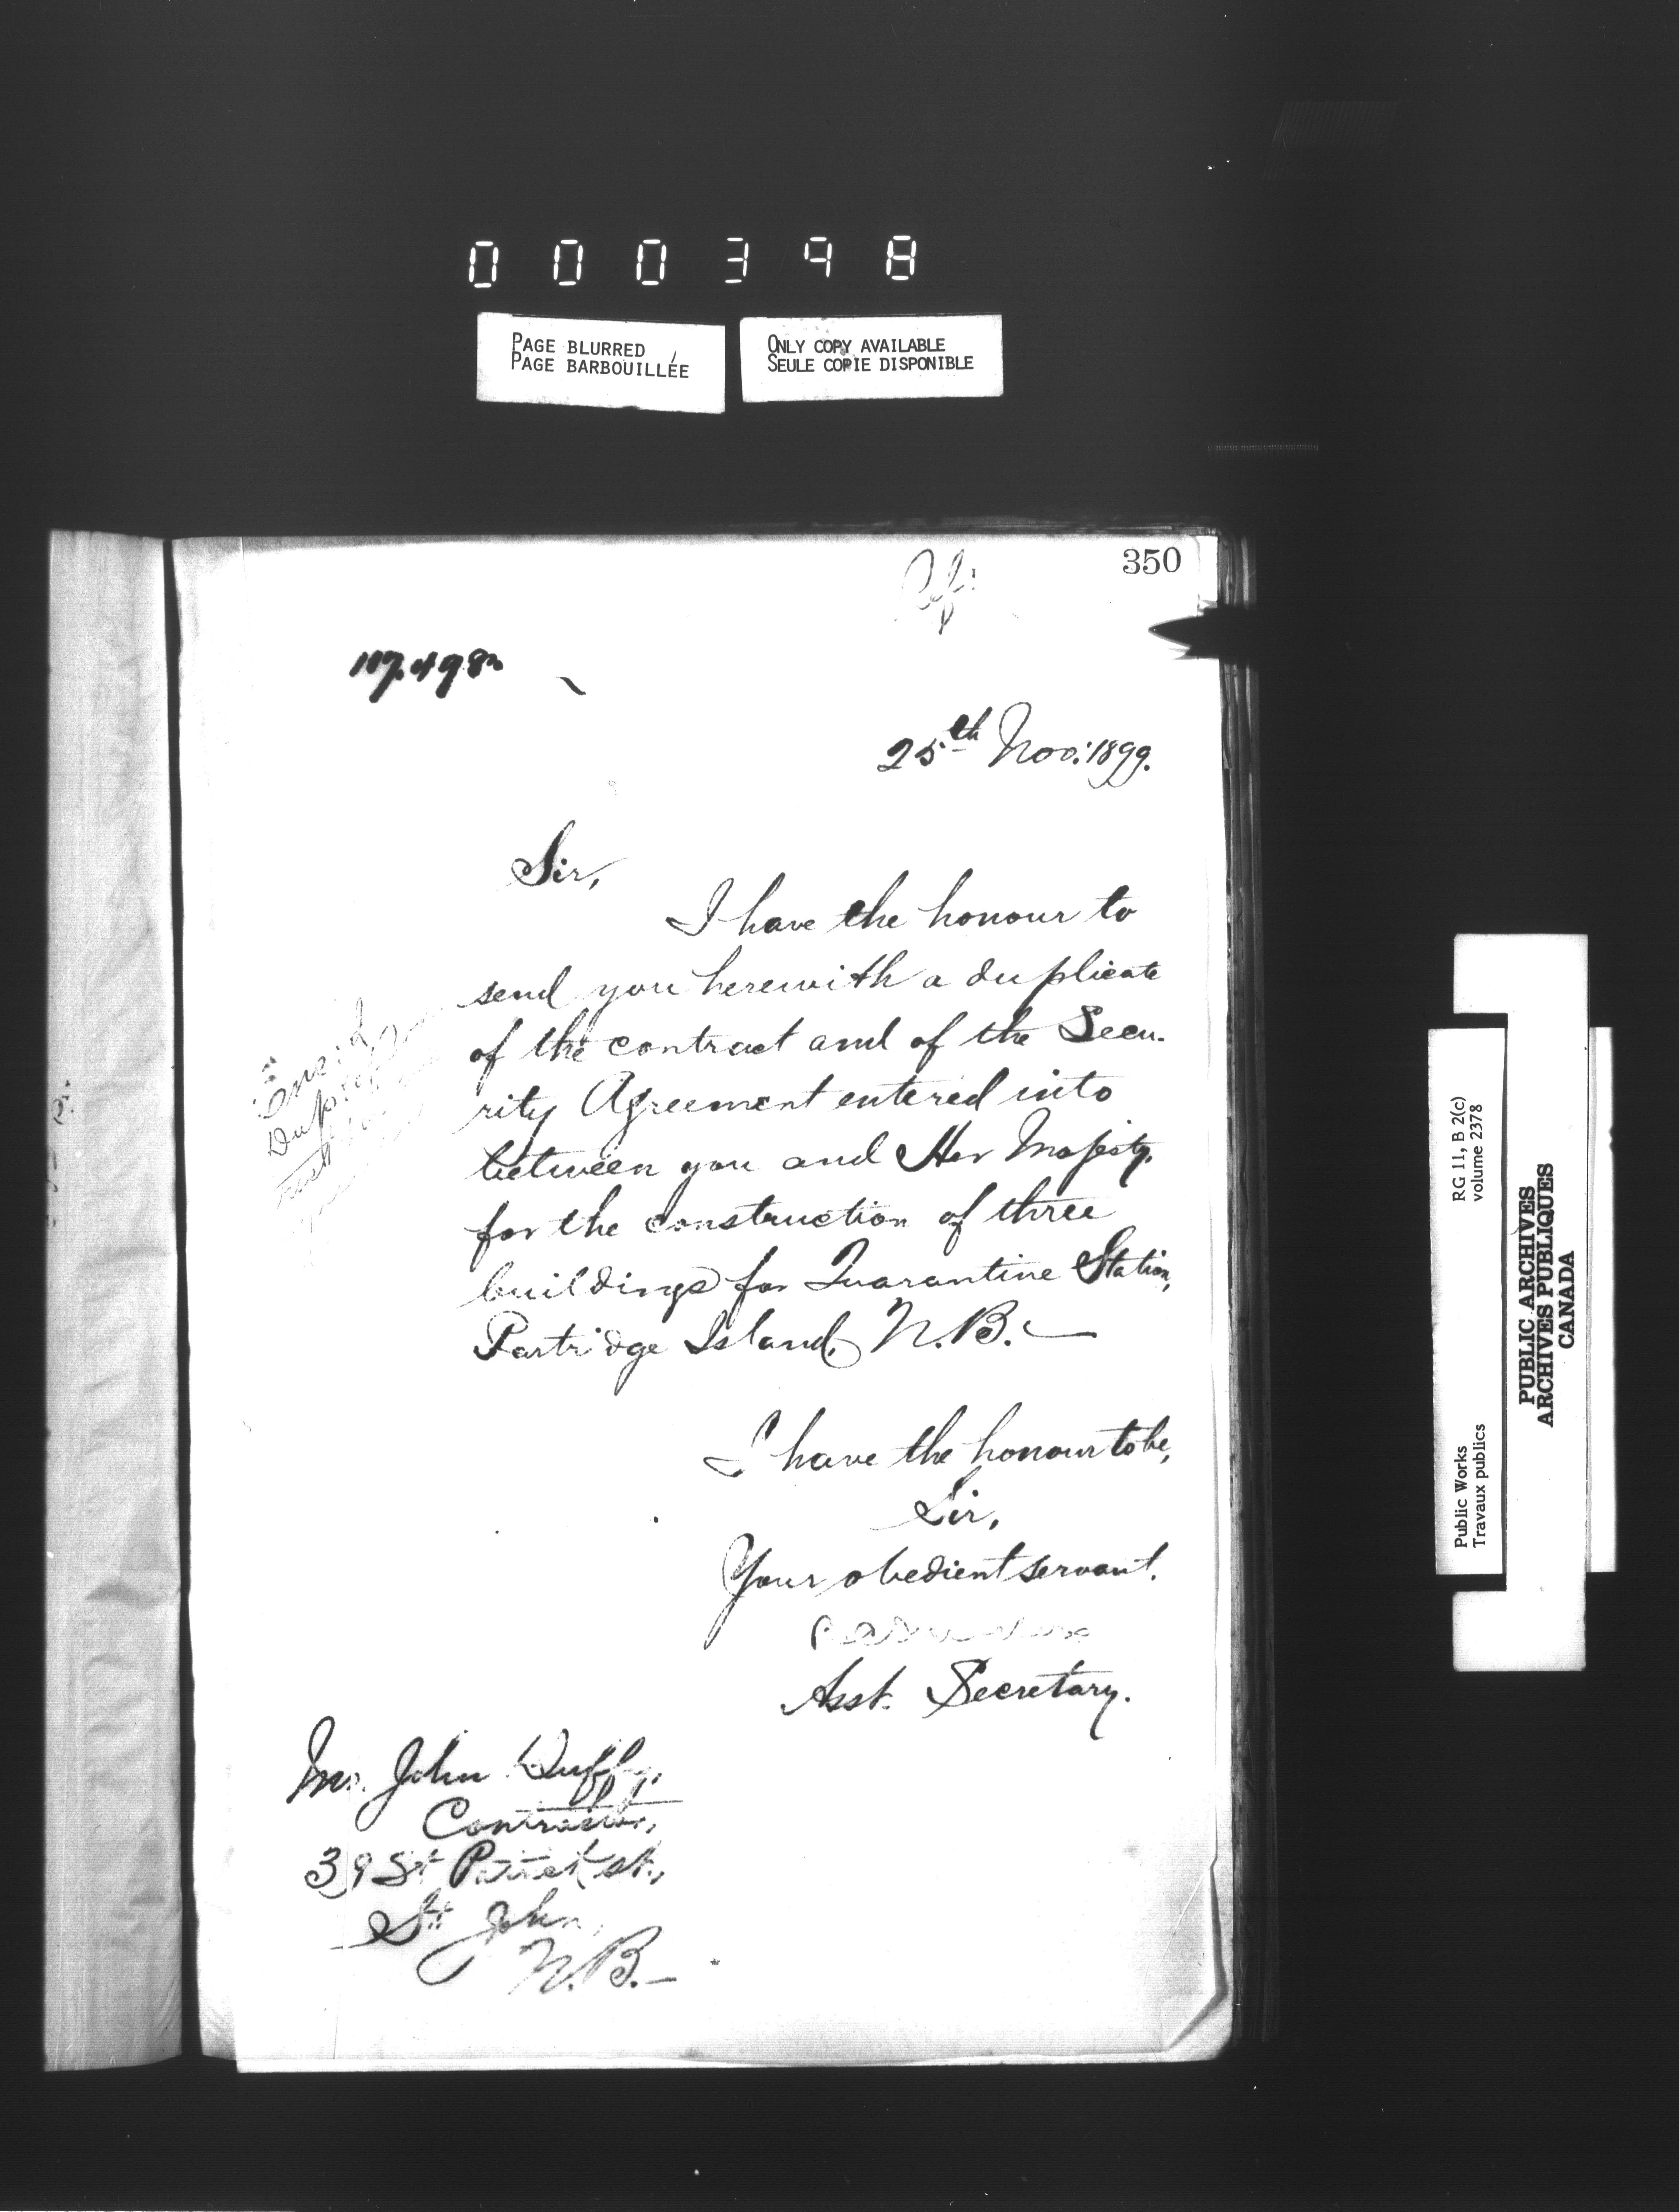 000398
PAGE BLURRED
PAGE BARBOUILLÉE
ONLY COPY AVAILABLE
SEULE COPIE DISPONIBLE
350
25th Nov: 1899.
Sir,
I have the honour to
send you herewith a duplicate
of the contract and of the Secu-
rity Agreement entered into
between you and Her Majesty,
for the construction of three
buildings for Quarantine Station,
Partridge Island, N.B.—
I have the honour to be,
Sir,
Your obedient servant.
Asst. Secretary.
Mr. John Duffy,
Contractor,
39 St Patrick St.,
St. John,
N.B.—
Public Works
Travaux publics
RG 11, B 2(c)
volume 2378
PUBLIC ARCHIVES
ARCHIVES PUBLIQUES
CANADA